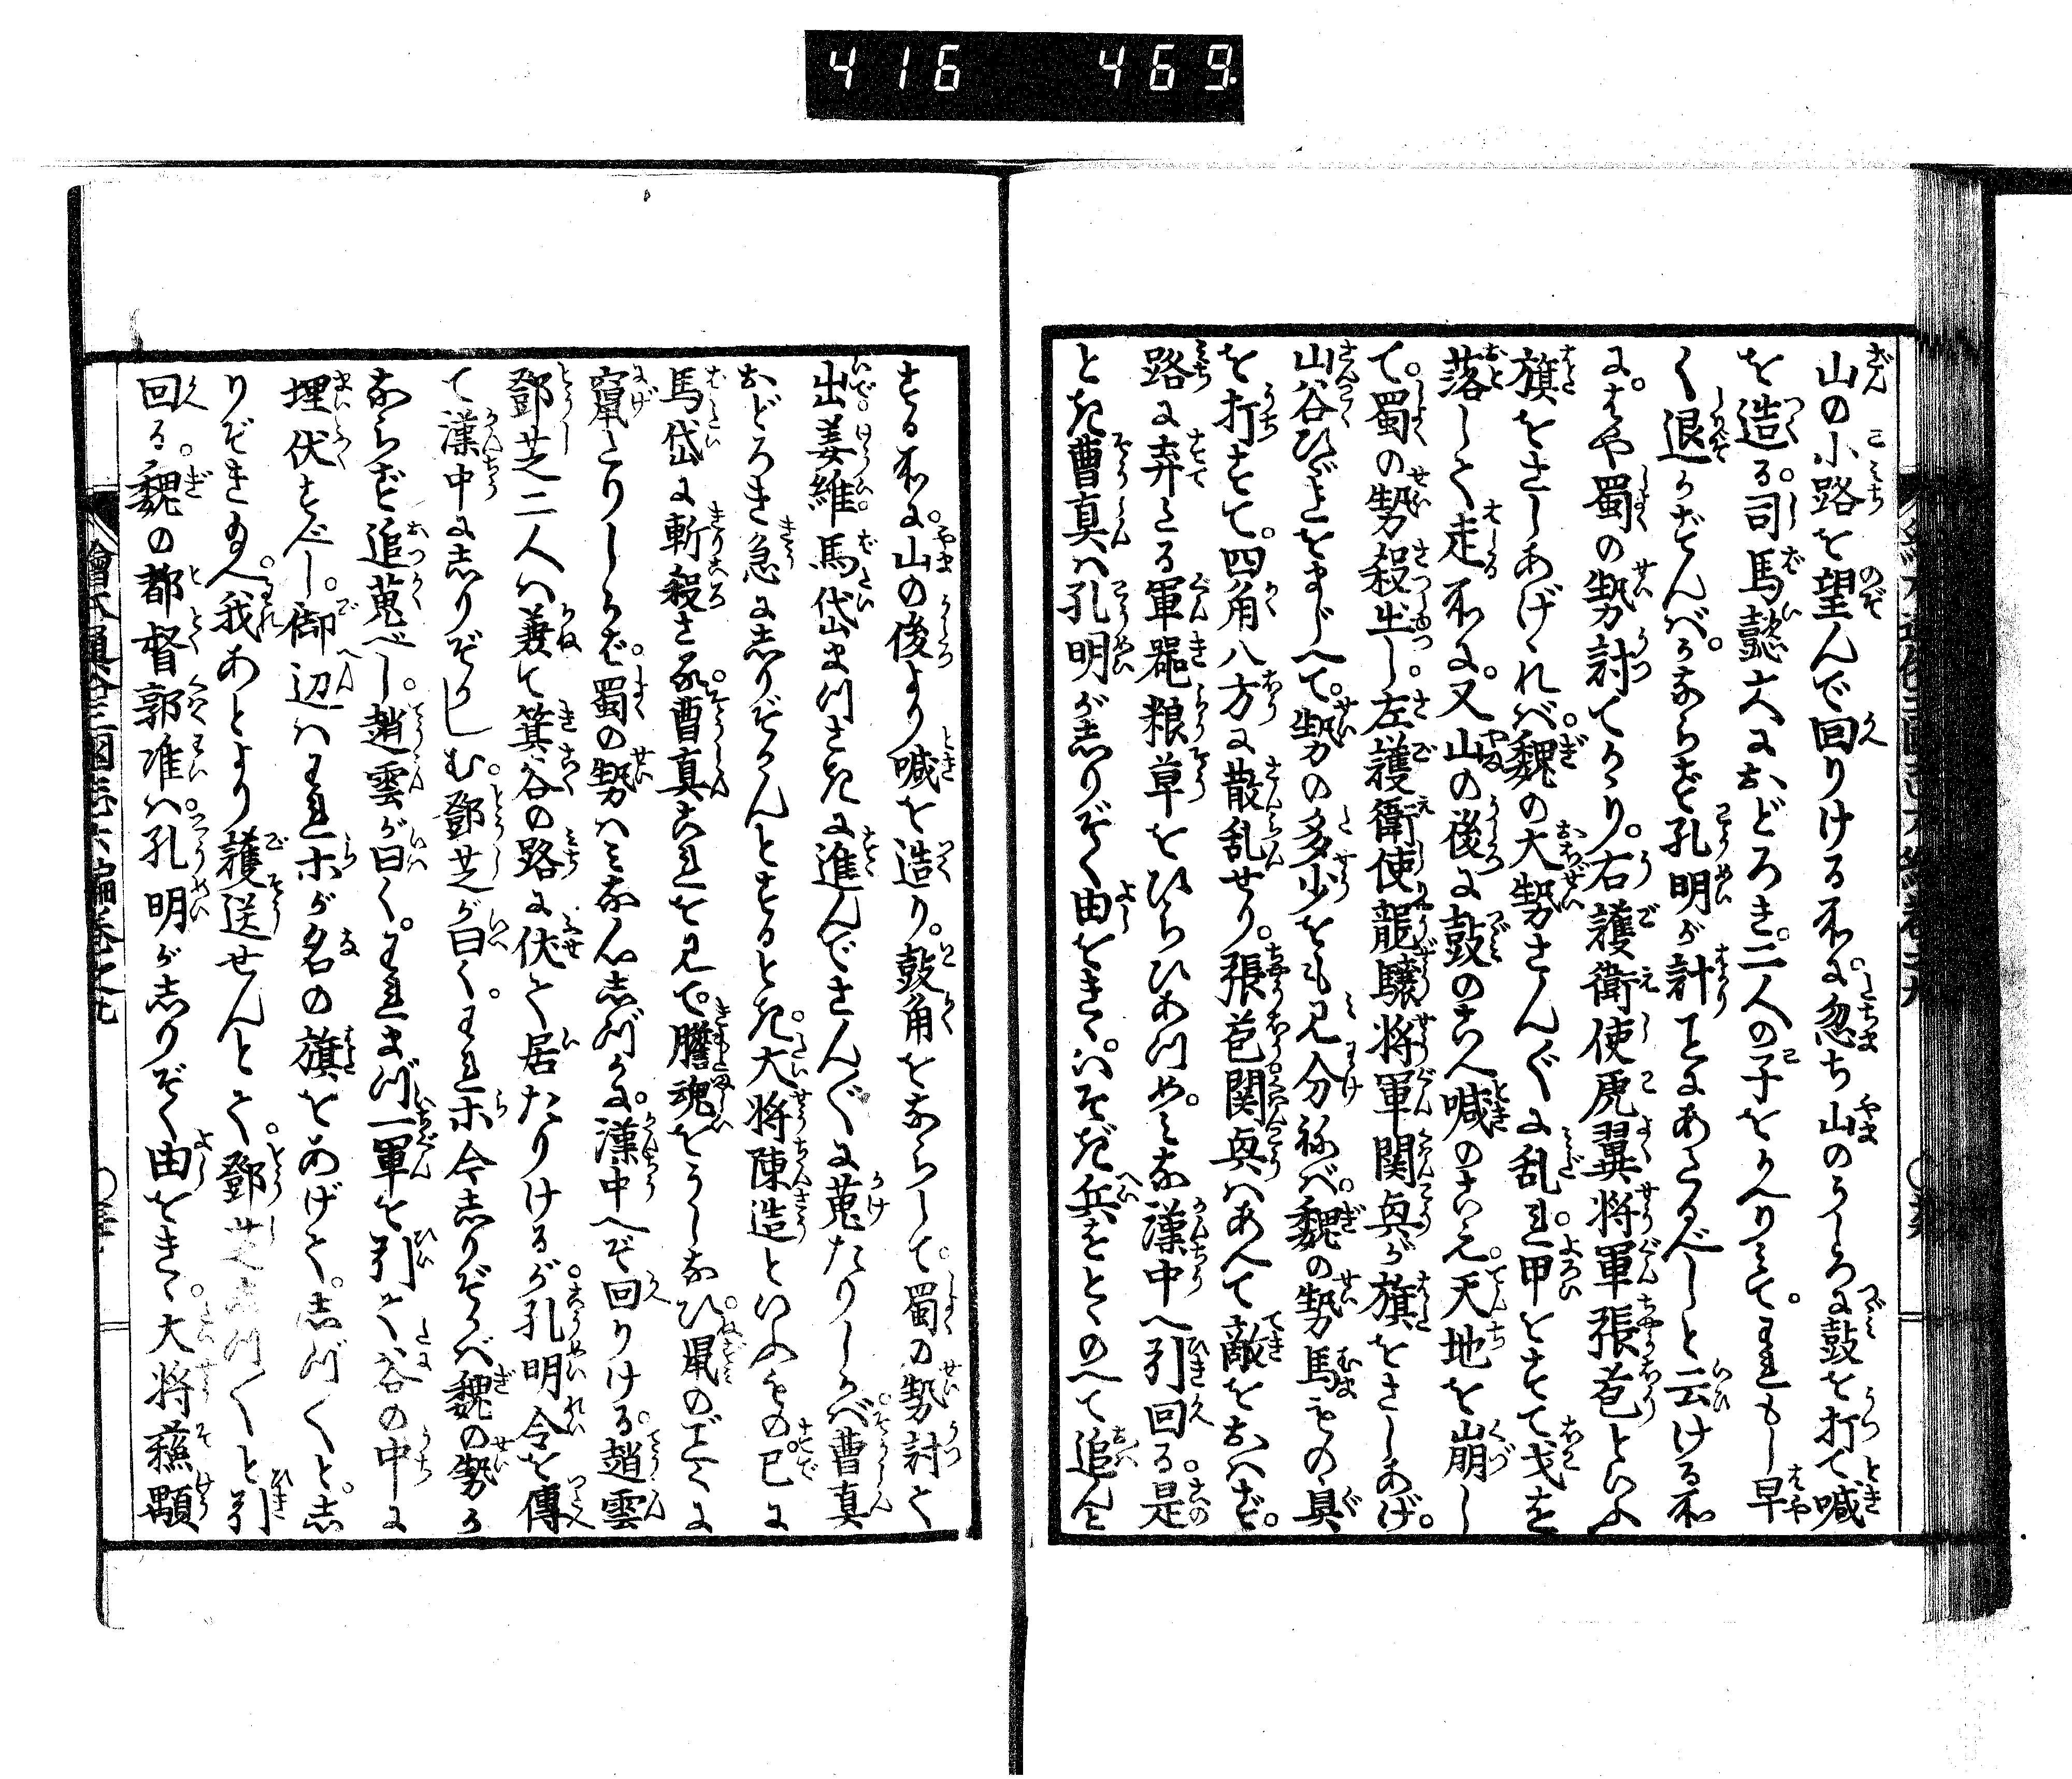 416 469
山の小路を望んで回りける所に。忽ち山のうしろに鼓を打て喊
を造る。司馬懿大におどろき。二人の子をかへりみて。われもし早
く退かずんば。かならず孔明が計ことにあたるべしと云ける所
に。はや蜀の勢討てかゝり。右護衛使虎翼将軍張苞といふ
旗をさしあげゝれば。魏の大勢さん〴〵に乱れ。甲をすて戈を
落して走る所に。又山の後に鼓のこゑ喊のこゑ。天地を崩し
て。蜀の勢殺出し。左護衛使龍驤将軍関興が旗をさしあげ。
山谷ひゞきをまじへて。勢の多少をも見分ねば。魏の勢馬ものゝ具
を打すて。四角八方に散乱せり。張苞関興はあへて敵をおはず。
路に弃たる軍器粮草をひらひあつめ。みな漢中へ引回る。是
とき曹真は孔明が志りぞく由をきゝ。いそぎ兵をとゝのへて追んと
する所に。山の後より喊を造り。鼓角をならして。蜀の勢討て
出。姜維。馬岱まつさきに進んでさん〴〵に蒐たりしかば。曹真
おどろき急に志りぞかんとするとき。大将陳造といふもの。已に
馬岱に斬殺さる。曹真これを見て。膽魂をうしなひ。鼠のごとくに
竄こりしかば。蜀の勢はみな心志づかに。漢中へぞ回りける。趙雲
鄧芝二人は兼て箕谷の路に伏て居たりけるが。孔明令を傳
て漢中に志りぞかしむ。鄧芝が曰く。われホ今志りぞかば魏の勢か
ならず追蒐べし。趙雲が曰く。われまづ一軍を引て谷の中に
埋伏すべし。御辺はわれホが名の旗をあげて。志づ〳〵と。志
りぞきたまへ。我あとより護送せんとて。鄧芝志づ〳〵と引
回る。魏の都督郭准は孔明が志りぞく由をきゝ。大将蘓顒
繪本通俗三國志六編巻之九